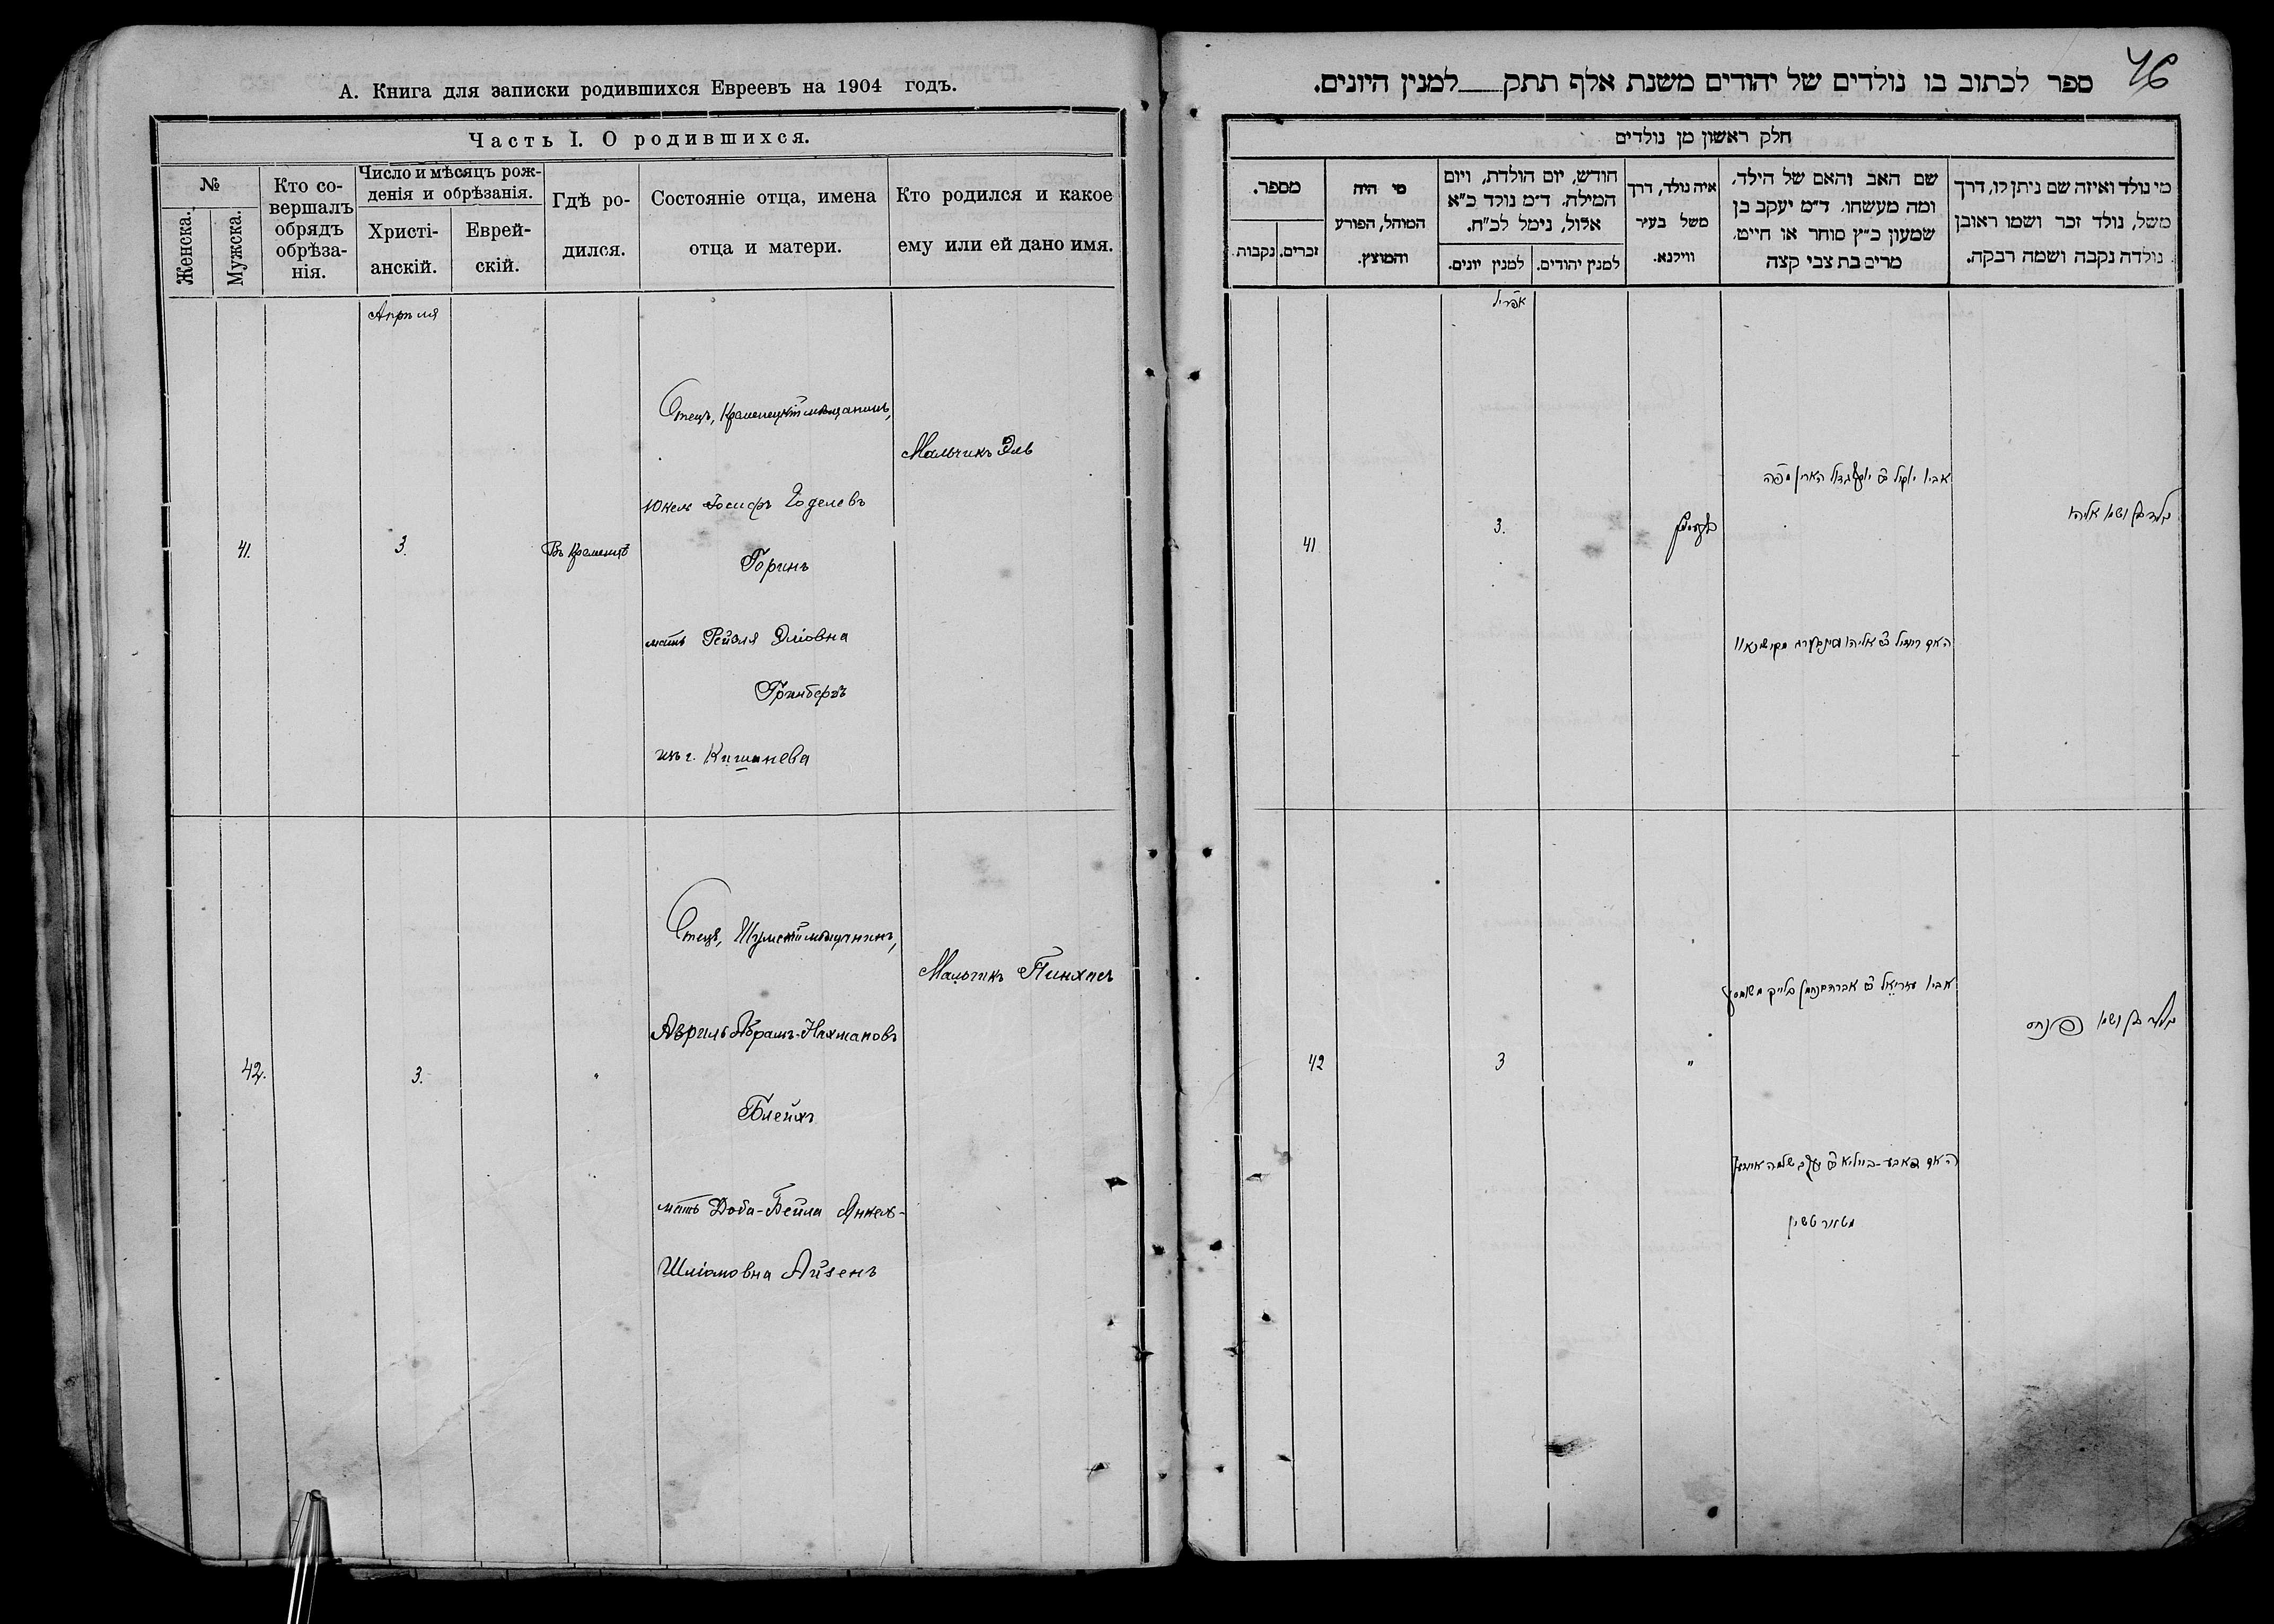 А. Книга для записки родившихся Евреевъ на 1904 годъ.
Часть I. О родившихся.
№
Женска.
Мужска.
Кто со-
вершалъ
обрядъ
обрѣза-
нія.
Число и мѣсяцъ рож-
денія и обрѣзанія.
Христі-
анскій.
Еврей-
скій.
Гдѣ ро-
дился.
Состояніе отца, имена
отца и матери.
Кто родился и какое
ему или ей дано имя.
Апрѣля
41.
3.
Въ Кременцѣ
Отецъ, Кременецкій мѣщанинъ,
Юкель Іосифъ Годелевъ
Горинъ
мать Рейзля Эліовна
Гринбергъ
изъ г. Кишинева
Мальчикъ Эль
42.
3.
"
Отецъ, Шумскій мѣщанинъ,
Азриль Абрамъ-Нахмановъ
Блейхъ
мать Доба-Бейла Янкель-
Шліомовна Айзенъ
Мальчикъ Пинхасъ
46
ספר לכתוב בו נולדים של יהודים משנת אלף תתק___למנין היונים.
חלק ראשון מן נולדים
מי נולד ואיזה שם ניתן לו, דרך
משל, נולד זכר ושמו ראובן
נולדה נקבה ושמה רבקה.
שם האב והאם של הילד,
ומה מעשהו. ד״מ יעקב בן
שמעון כ״ץ סוחר או חייט.
מרים בת צבי קצה
איה נולד, דרך
משל בעיר
ווילנא.
חודש, יום הולדת, ויום
המילה. ד״מ נולד כ״א
אלול, נימל לכ״ח.
למנין יהודים.
למנין יונים.
מי היה
המוהל, הפורע
והמוצץ.
מספר.
זכרים.
נקבות.
אפריל
41
3.
אביו
ושמו אליהו
האם רייזיל אליהו
42
3
"
אביו עזריאל אברהם נחמן
ושמו פנחס
האם שלמה